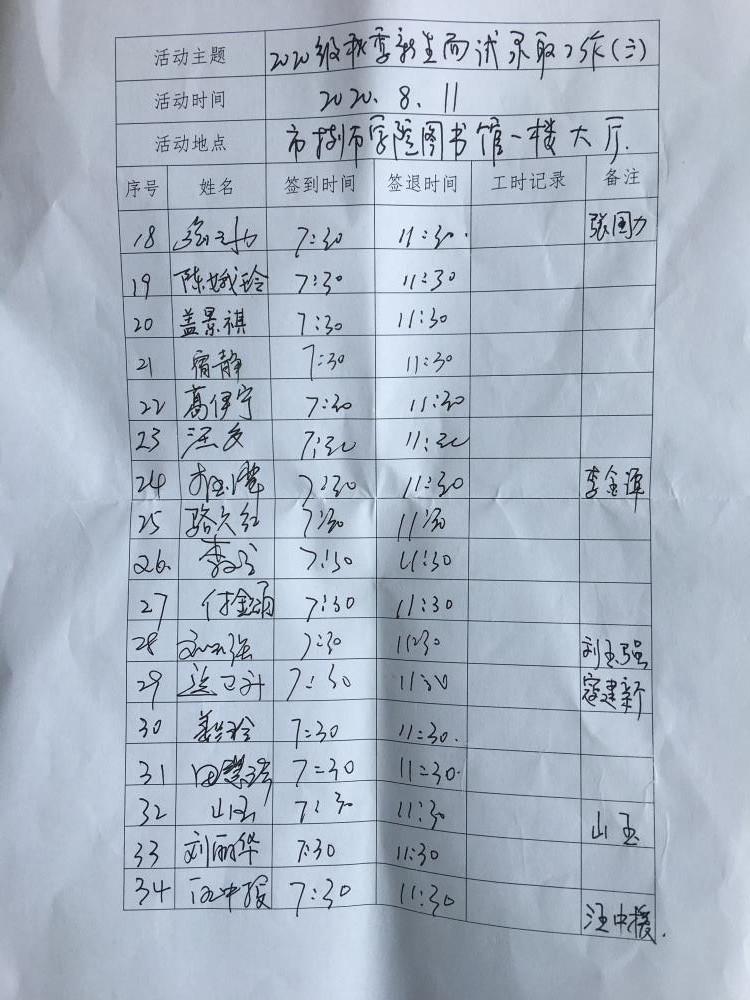 活动主题 2020级秋季新生面试录取工作(三)
活动时间 2020.8.11
活动地点 市树市学院图书馆一楼大厅.
序号 姓名 签到时间 签退时间 工时记录 备注
18 7:30 11:30. 张国力
19 陈娥玲 7:30 11:30
20 盖景祺 7:30 11:30
21 宿静 7:30 11:30
22 高伊宁 7:30 11:30
23 汪友 7:30 11:30
24 7:30 11:30 李金译
25 骆久红 7:30 11:30
26. 7:30 11:30
27 付金颂 7:30 11:30
28 刘玉强 7:30 11:30 刘玉强
29 7:30 11:30 寇建新
30 姜玲 7:30 11:30.
31 田 7=30 11=30.
32 山玉 7:30 11:30 山玉
33 刘丽华 7:30 11:30
34 汪中援 7:30 11:30 汪中援.